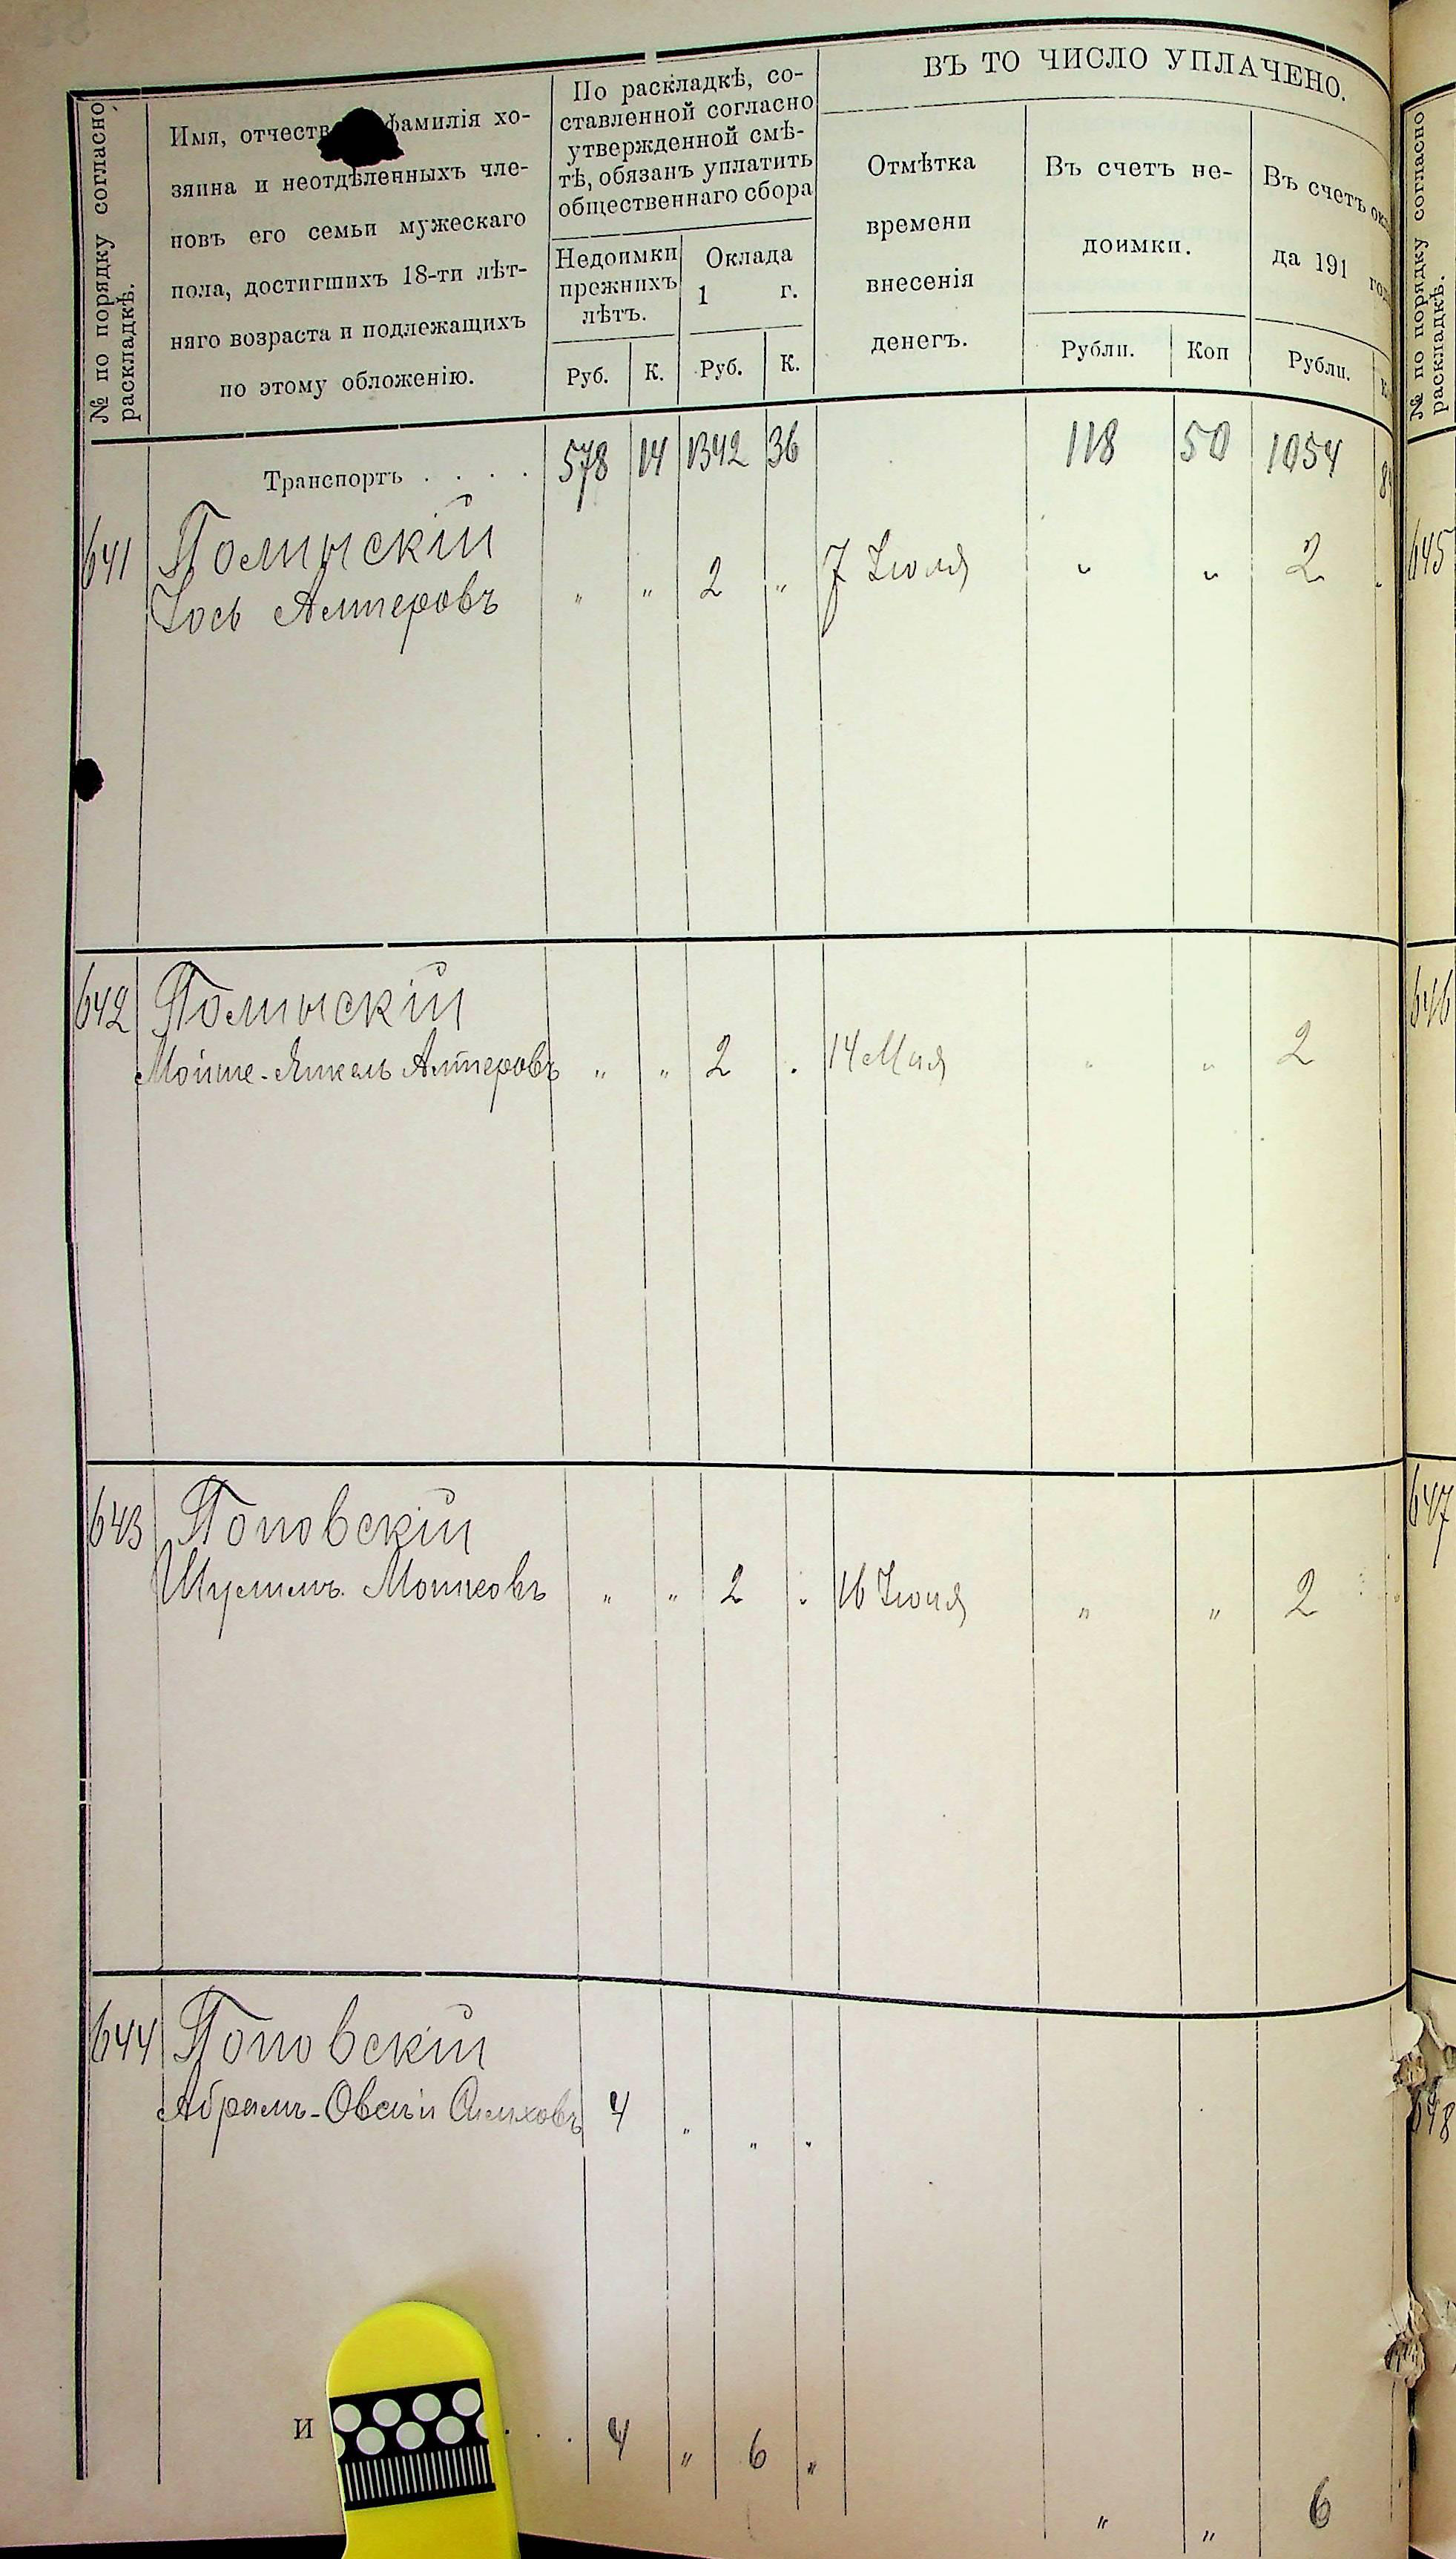 № по порядку согласно
раскладкѣ.
Имя, отчеств фамилія хо-
зяина и неотдѣленныхъ чле-
новъ его семьи мужескаго
пола, достигшихъ 18-ти лѣт-
няго возраста и подлежащихъ
по этому обложенію.
По раскладкѣ, со-
ставленной согласно
утвержденной смѣ-
тѣ, обязанъ уплатить
общественнаго сбора
Недоимки
прежнихъ
лѣтъ.
Оклада
1 г.
Руб. К. Руб. К.
ВЪ ТО ЧИСЛО УПЛАЧЕНО.
Отмѣтка
времени
внесенія
денегъ.
Въ счетъ не-
доимки.
Рубли. Коп
Въ счетъ ок
да 191 го
Рубли. К
Транспортъ . . . . 578 14 1342 36 118 50 1054 8
641 Полынскій
Іось Алтеровъ " " 2 " 7 Іюля " " 2
642 Полынскій
Мойше-Янкель Алтеровъ " " 2 " 14 Мая " " 2
643 Поповскій
Шулимъ Мошковъ " " 2 " 16 Іюня " " 2 "
644 Поповскій
Абрамъ-Овсѣй 4 " " "
И . . . 4 " 6 " " " 6
№ по порядку согласно
раскладкѣ.
645
646
647
648